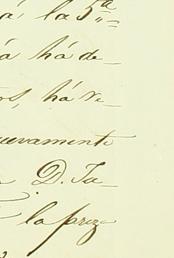 á, la 5.ª
á há de-
há ve-
uevamente
D. Ju-
la preze